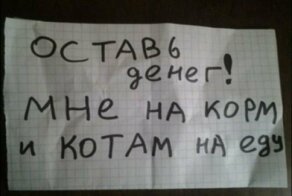 ОСТАВЬ
денег!
МНе НА КОРМ
и КОТАМ НА еду